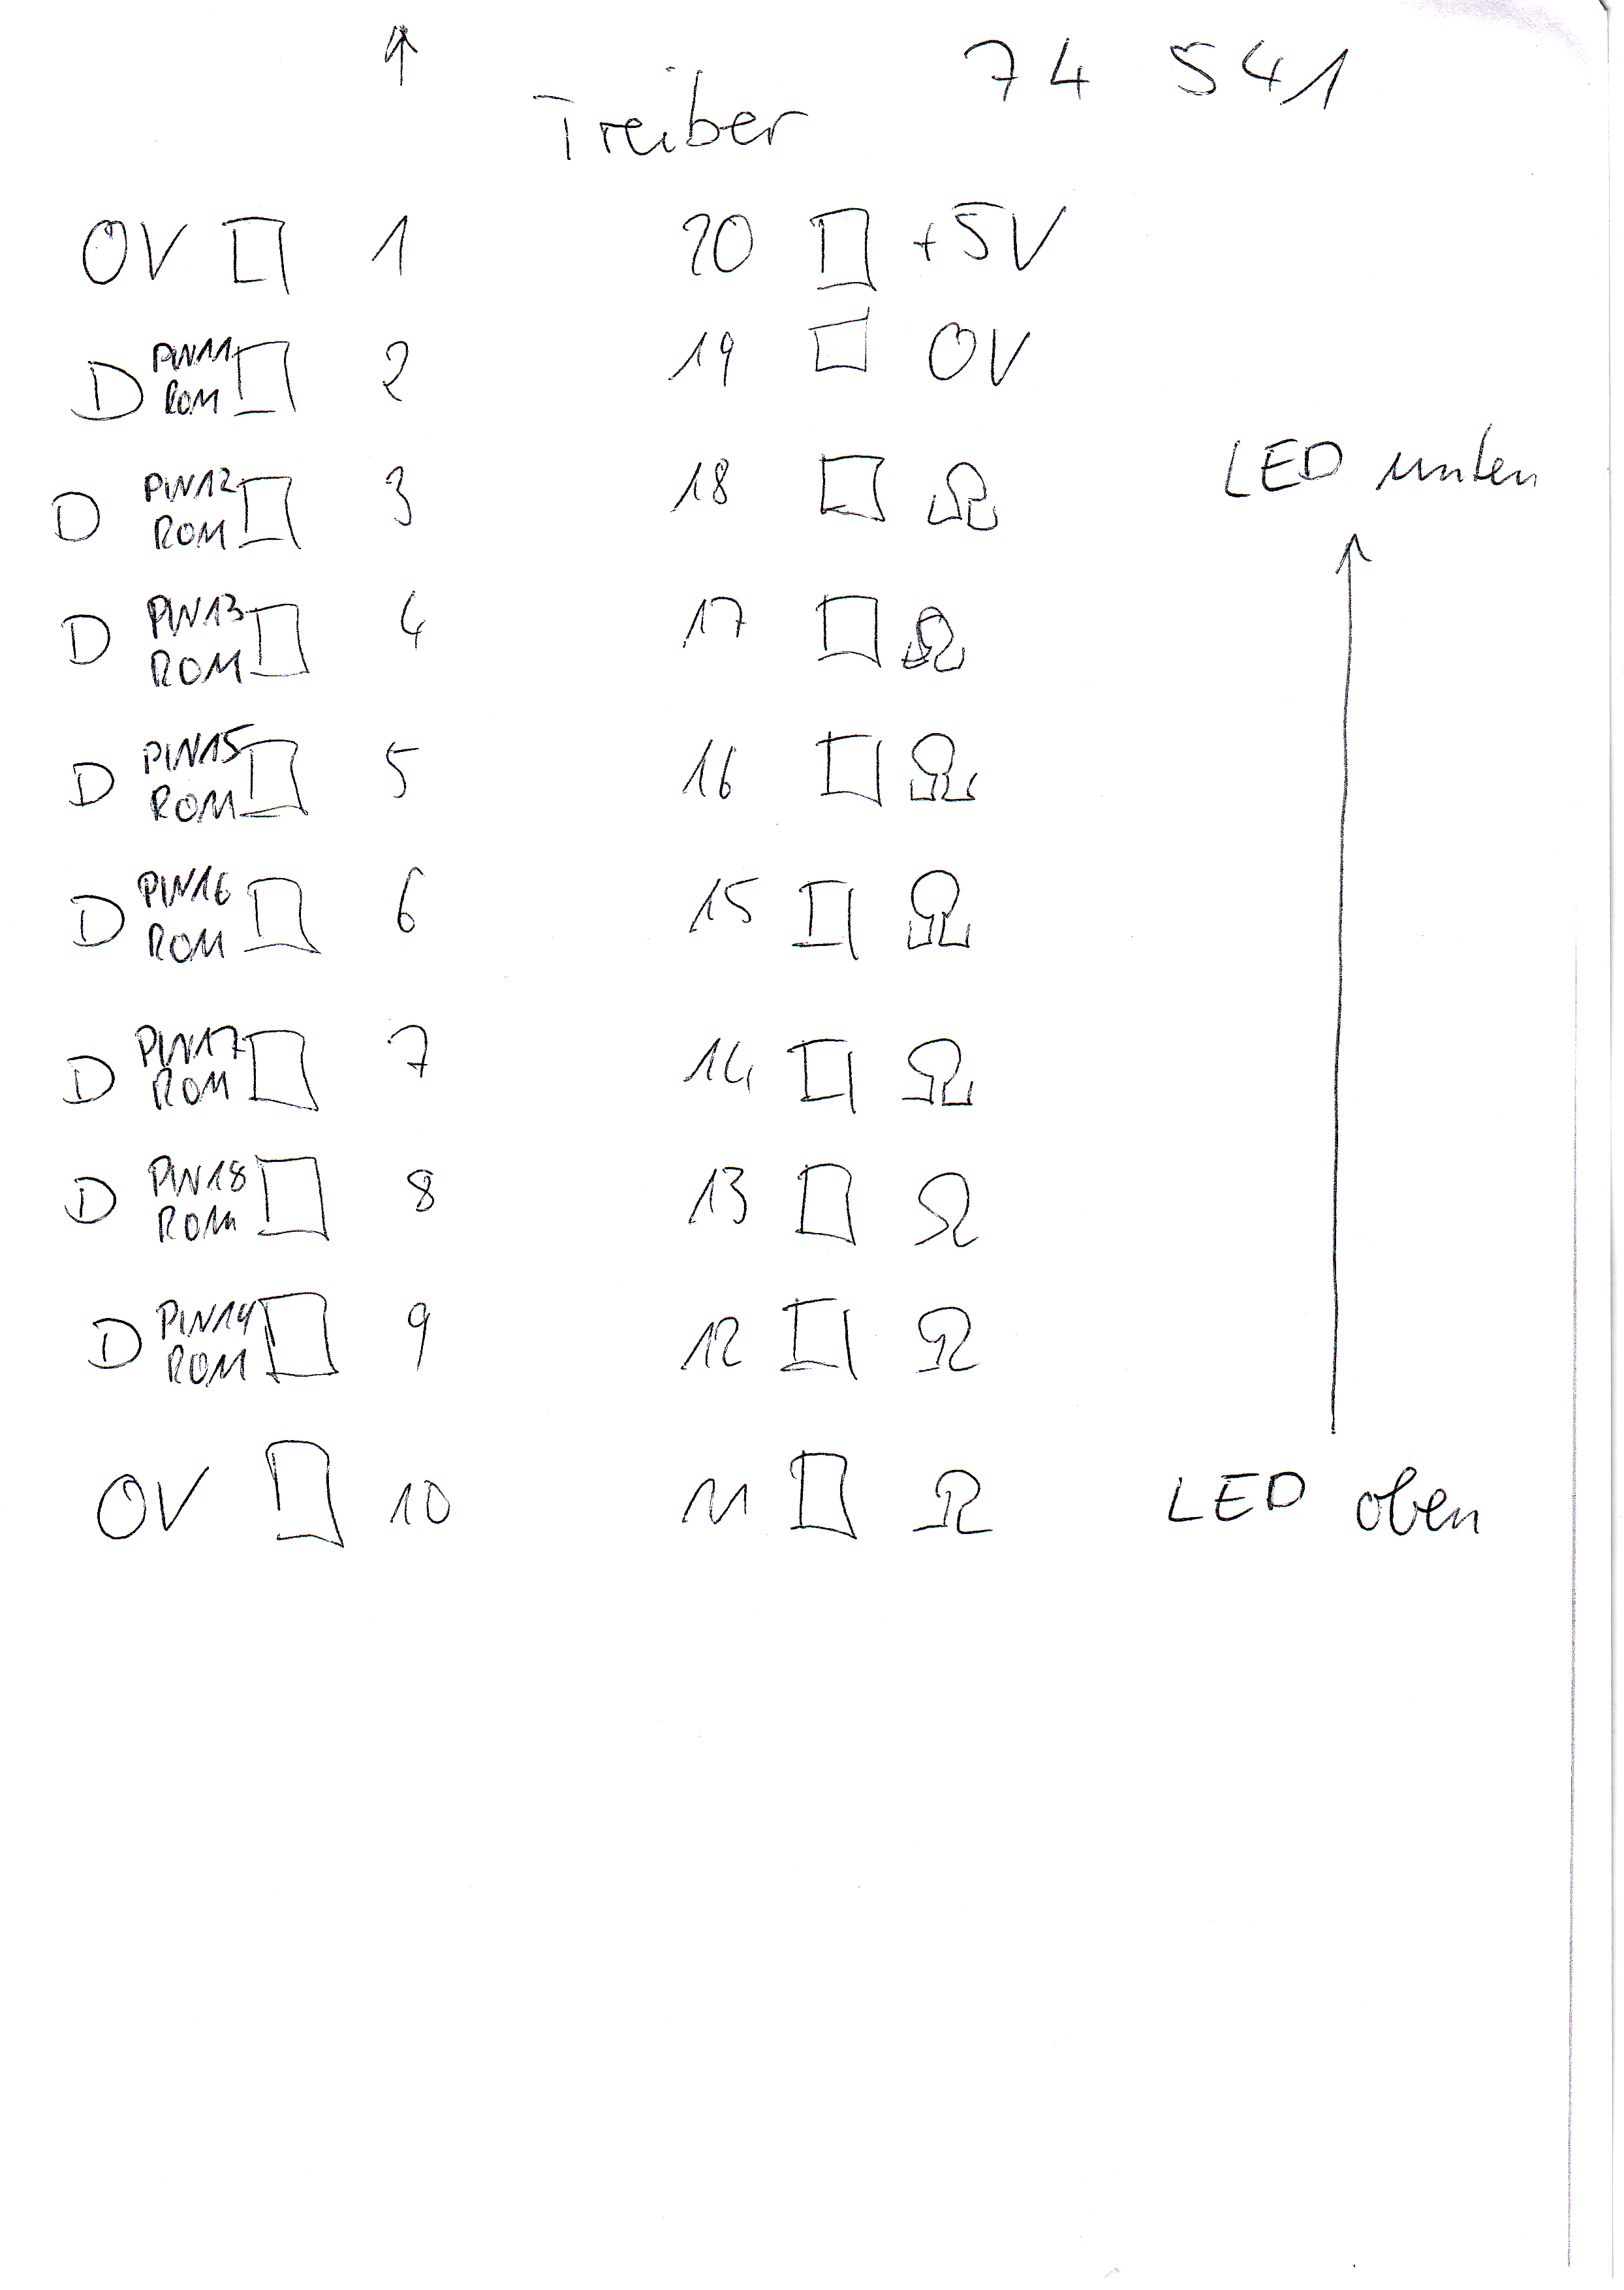 ↑ Treiber 74 541
0V 1 20 +5V
D PIN11 ROM 2 19 0V
LED unten
D PIN12 ROM 3 18 Ω
D PIN13 ROM 4 17 Ω
D PIN15 ROM 5 16 Ω
D PIN16 ROM 6 15 Ω
D PIN17 ROM 7 14 Ω
D PIN18 ROM 8 13 Ω
D PIN19 ROM 9 12 Ω
0V 10 11 Ω LED oben